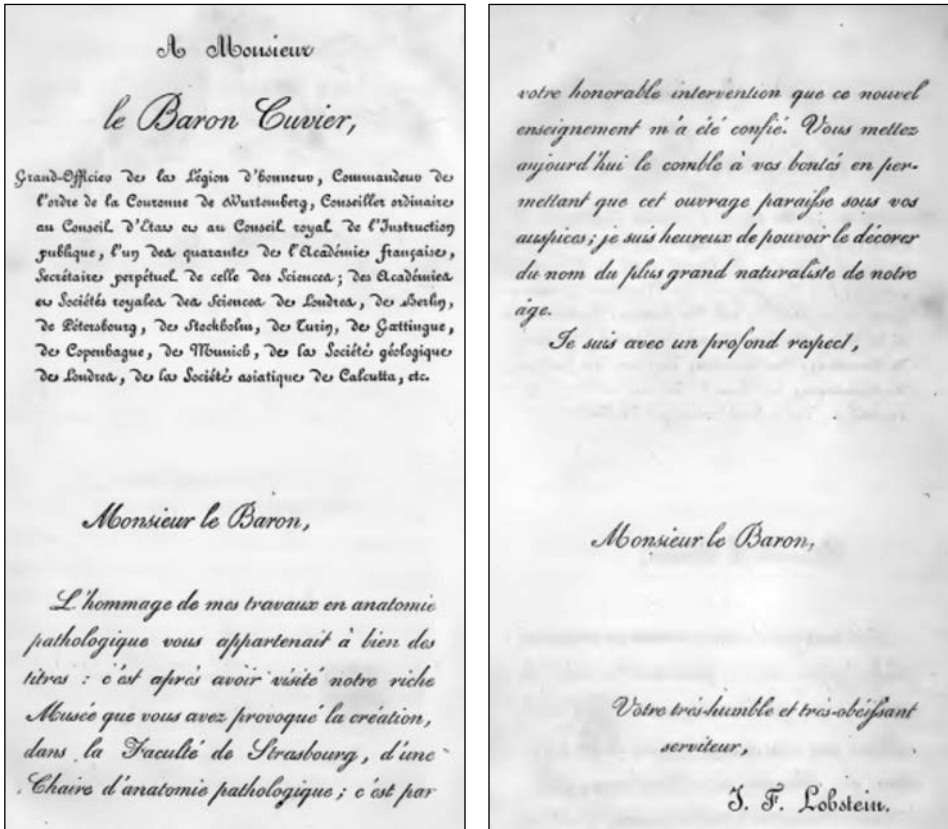 A Monsieur
le Baron Cuvier,
Grand-Officier de la Légion d'honneur, Commandeur de
l'ordre de la Couronne de Wurtemberg, Conseiller ordinaire
au Conseil d'État et au Conseil royal de l'Instruction
publique, l'un des quarante de l'Académie française,
Secrétaire perpétuel de celle des Sciences; des Académies
et Sociétés royales des Sciences de Londres, de Berlin,
de Pétersbourg, de Stockholm, de Turin, de Gœttingue,
de Copenhague, de Munich, de la Société géologique
de Londres, de la Société asiatique de Calcutta, etc.
Monsieur le Baron,
L'hommage de mes travaux en anatomie
pathologique vous appartenait à bien des
titres : c'est après avoir visité notre riche
Musée que vous avez provoqué la création,
dans la Faculté de Strasbourg, d'une
Chaire d'anatomie pathologique; c'est par
votre honorable intervention que ce nouvel
enseignement m'a été confié. Vous mettez
aujourd'hui le comble à vos bontés en per-
mettant que cet ouvrage paraiſse sous vos
auspices; je suis heureux de pouvoir le décorer
du nom du plus grand naturaliste de notre
âge.
Je suis avec un profond respect,
Monsieur le Baron,
Votre très-humble et très-obéiſsant
serviteur,
J. F. Lobstein.